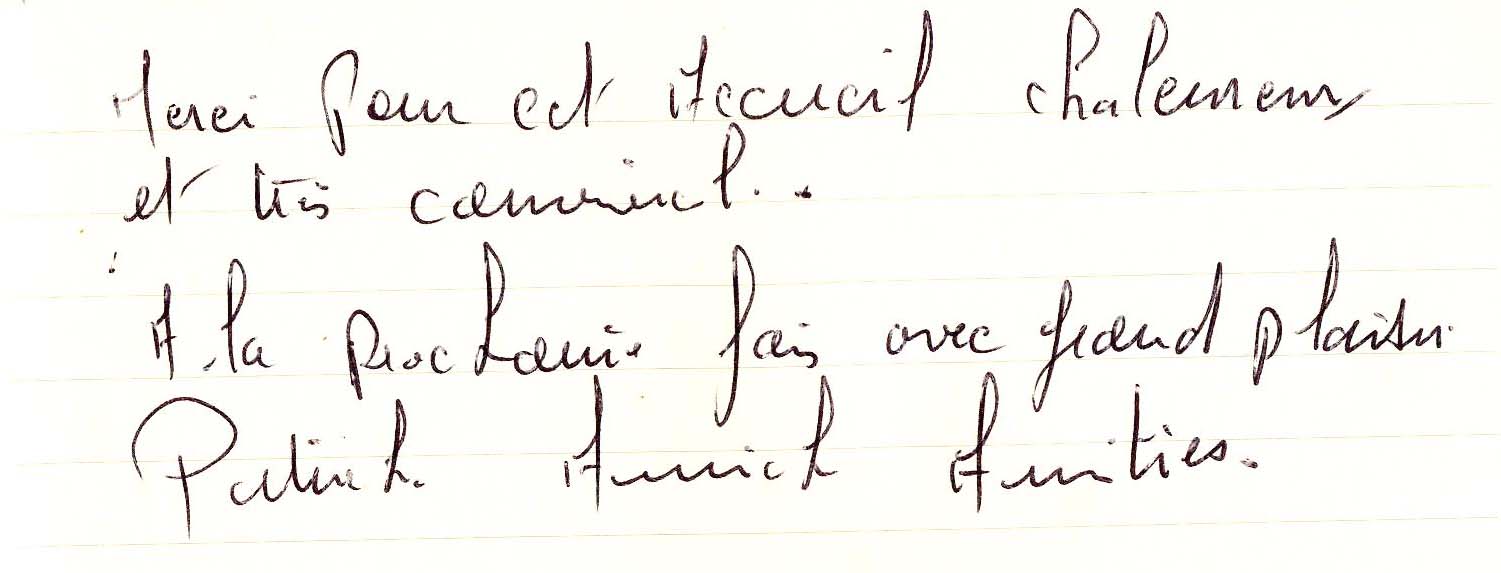 Merci pour cet Accueil chaleureux
et très convivial...
A la prochaine fois avec grand plaisir
Patrick Annick Amitiés.